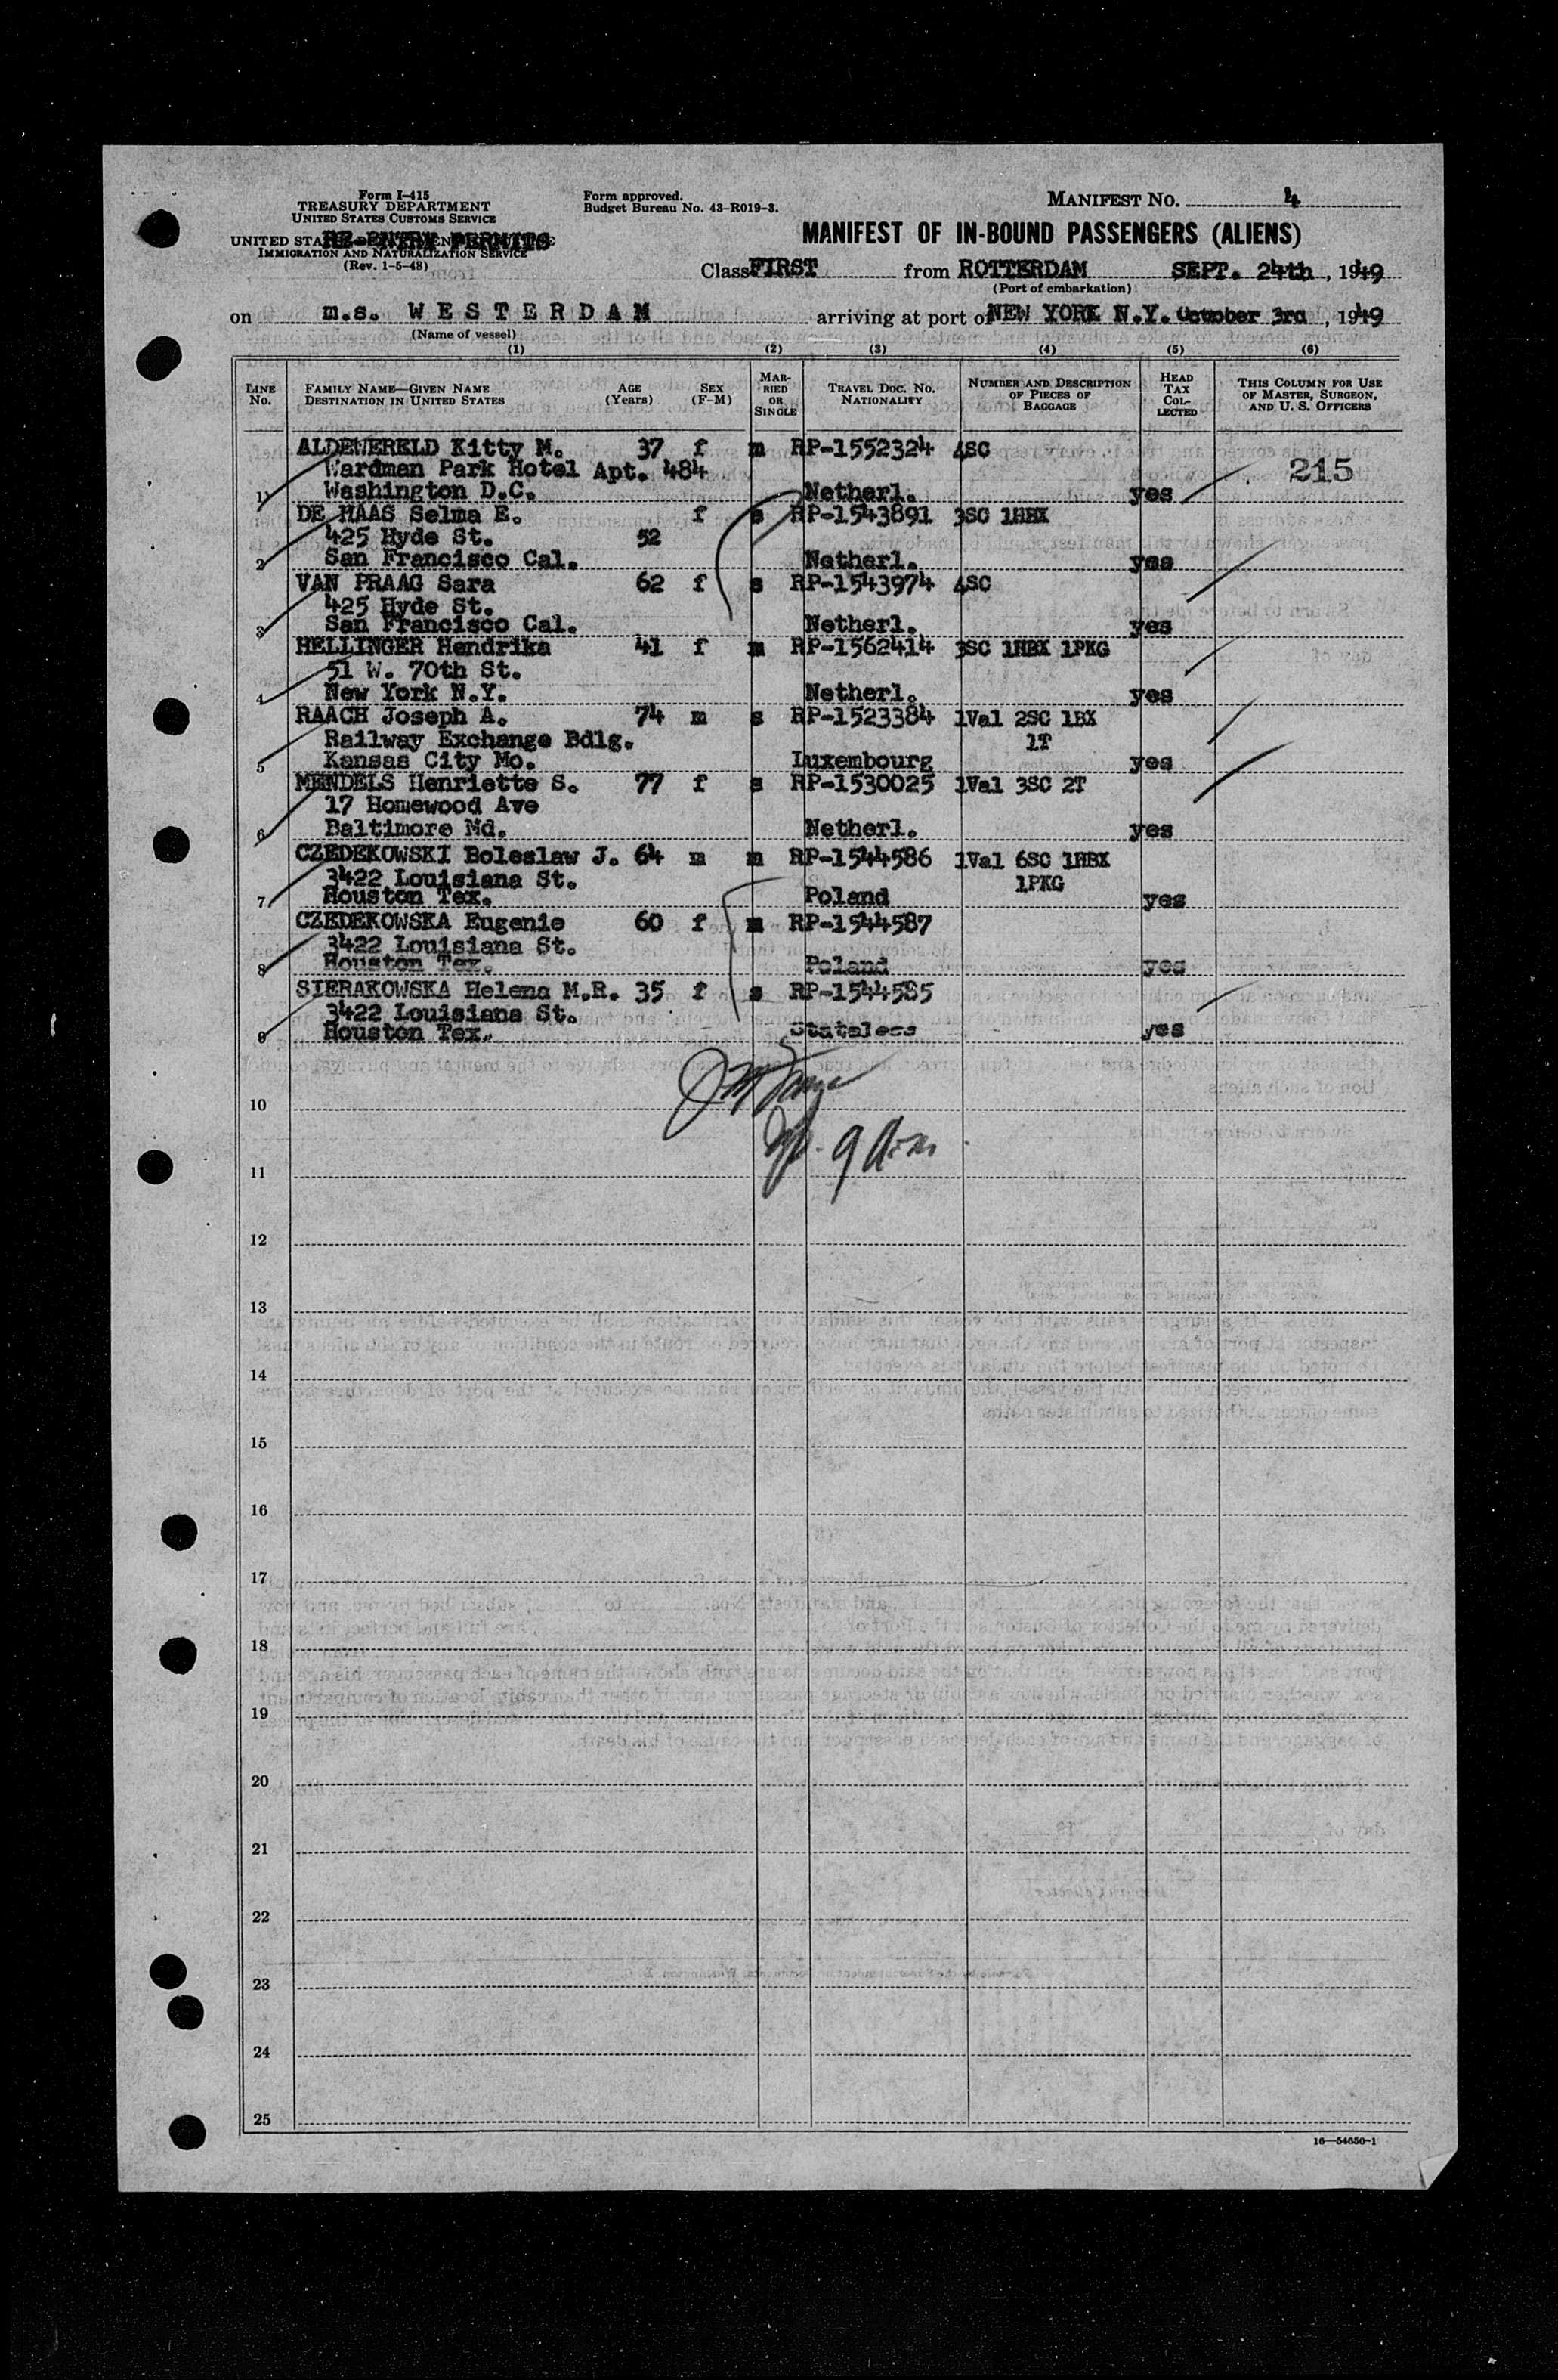 Form I-415
TREASURY DEPARTMENT
UNITED STATES CUSTOMS SERVICE
RE-ENTRY PERMITS
IMMIGRATION AND NATURALIZATION SERVICE
(Rev. 1-5-48)
Form approved.
Budget Bureau No. 43-R019-3.
MANIFEST NO. 4
MANIFEST OF IN-BOUND PASSENGERS (ALIENS)
Class FIRST from ROTTERDAM SEPT. 24th, 1949
(Port of embarkation)
on m.s. WESTERDAM arriving at port of NEW YORK N.Y. October 3rd, 1949
(Name of vessel)
(1) (2) (3) (4) (5) (6)
LINE NO. FAMILY NAME—GIVEN NAME DESTINATION IN UNITED STATES AGE (Years) SEX (F-M) MARRIED OR SINGLE TRAVEL DOC. NO. NATIONALITY NUMBER AND DESCRIPTION OF PIECES OF BAGGAGE HEAD TAX COLLECTED THIS COLUMN FOR USE OF MASTER, SURGEON, AND U. S. OFFICERS
ALDEWERELD Kitty M. 37 f m RP-1552324 4SC
Wardman Park Hotel Apt. 484 215
1 Washington D.C. Netherl. yes
DE HAAS Selma E. f s RP-1543891 3SC 1HBX
425 Hyde St. 52
2 San Francisco Cal. Netherl. yes
VAN PRAAG Sara 62 f s RP-1543974 4SC
425 Hyde St.
3 San Francisco Cal. Netherl. yes
HELLINGER Hendrika 41 f m RP-1562414 3SC 1HBX 1PKG
51 W. 70th St.
4 New York N.Y. Netherl. yes
RAACH Joseph A. 74 m s RP-1523384 1Val 2SC 1BX
Railway Exchange Bdlg. 1T
5 Kansas City Mo. Luxembourg yes
MENDELS Henriette S. 77 f s RP-1530025 1Val 3SC 2T
17 Homewood Ave
6 Baltimore Md. Netherl. yes
CZEDEKOWSKI Boleslaw J. 64 m m RP-1544586 1Val 6SC 1HBX
3422 Louisiana St. 1PKG
7 Houston Tex. Poland yes
CZEDEKOWSKA Eugenie 60 f m RP-1544587
3422 Louisiana St.
8 Houston Tex. Poland yes
SIERAKOWSKA Helena M.R. 35 f s RP-1544585
3422 Louisiana St.
9 Houston Tex. Stateless yes
10
11
12
13
14
15
16
17
18
19
20
21
22
23
24
25
16—54650-1